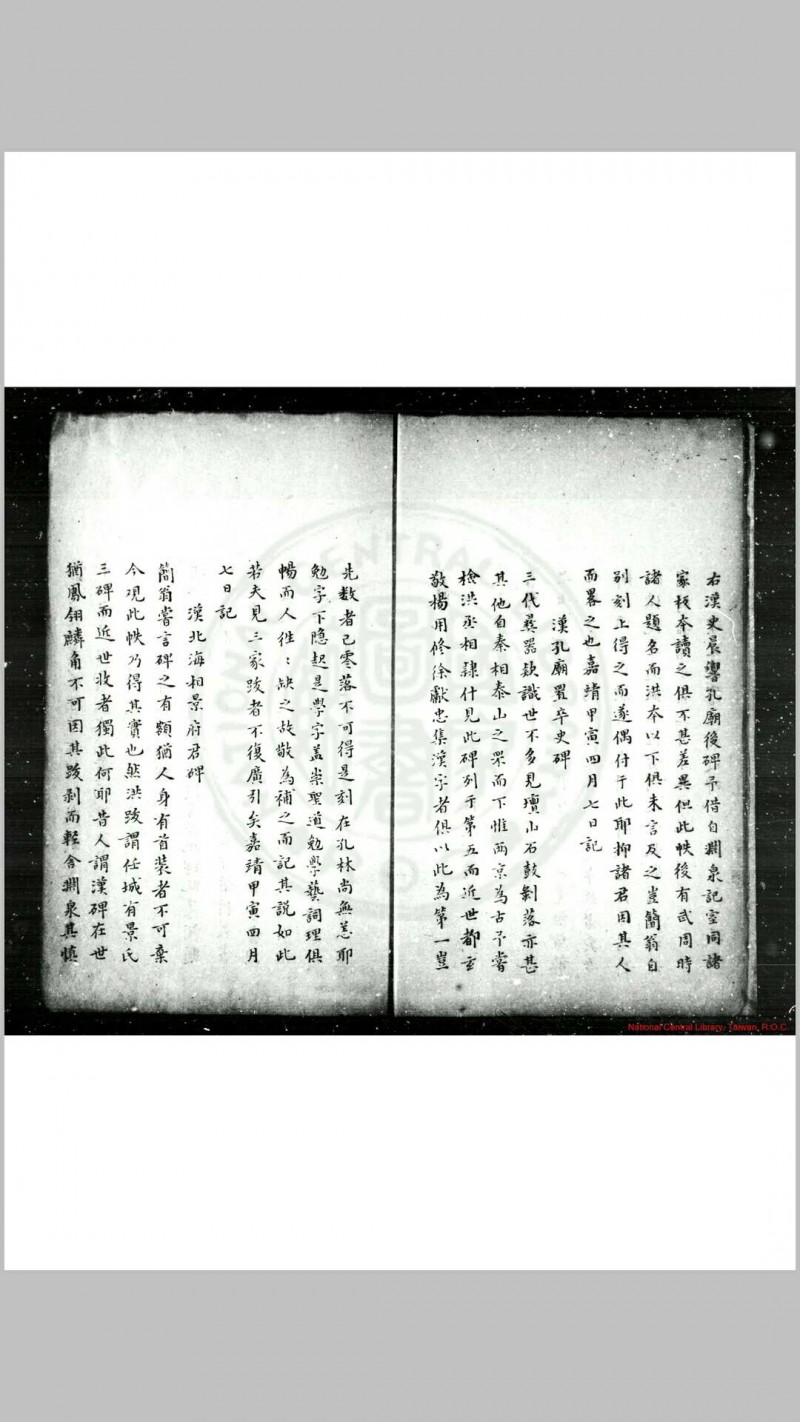 右漢史晨饗孔廟後碑予借自淵泉記室同諸
家板本讀之俱不甚差異但此帙後有武周時
諸人題名而洪本以下俱未言及之豈簡翁自
別刻上得之而遂偶付于此耶抑諸君因其人
而畧之也嘉靖甲寅四月七日記
漢孔廟置卒史碑
三代彞器欵識世不多見壇山石鼓剝落亦甚
其他自秦相泰山之罘而下惟兩京為古予嘗
檢洪丞相隷什見此碑列于第五而近世都玄
敬楊用修徐獻忠集漢字者俱以此為第一豈
先数者已零落不可得是刻在孔林尚無恙耶
勉字下隐起是學字盖崇聖道勉學藝詞理俱
暢而人徃〻缺之故敬為補之而記其説如此
若夫見三家跋者不復廣引矣嘉靖甲寅四月
七日記
漢北海相景府君碑
簡翁嘗言碑之有額猶人身有首装者不可棄
今观此帙乃得其實也然洪跋謂任城有景氏
三碑而近世收者獨此何耶昔人謂漢碑在世
猶鳳翎麟角不可因其跋剥而輕舍淵泉其慎
National Central Library, Taiwan, R.O.C.